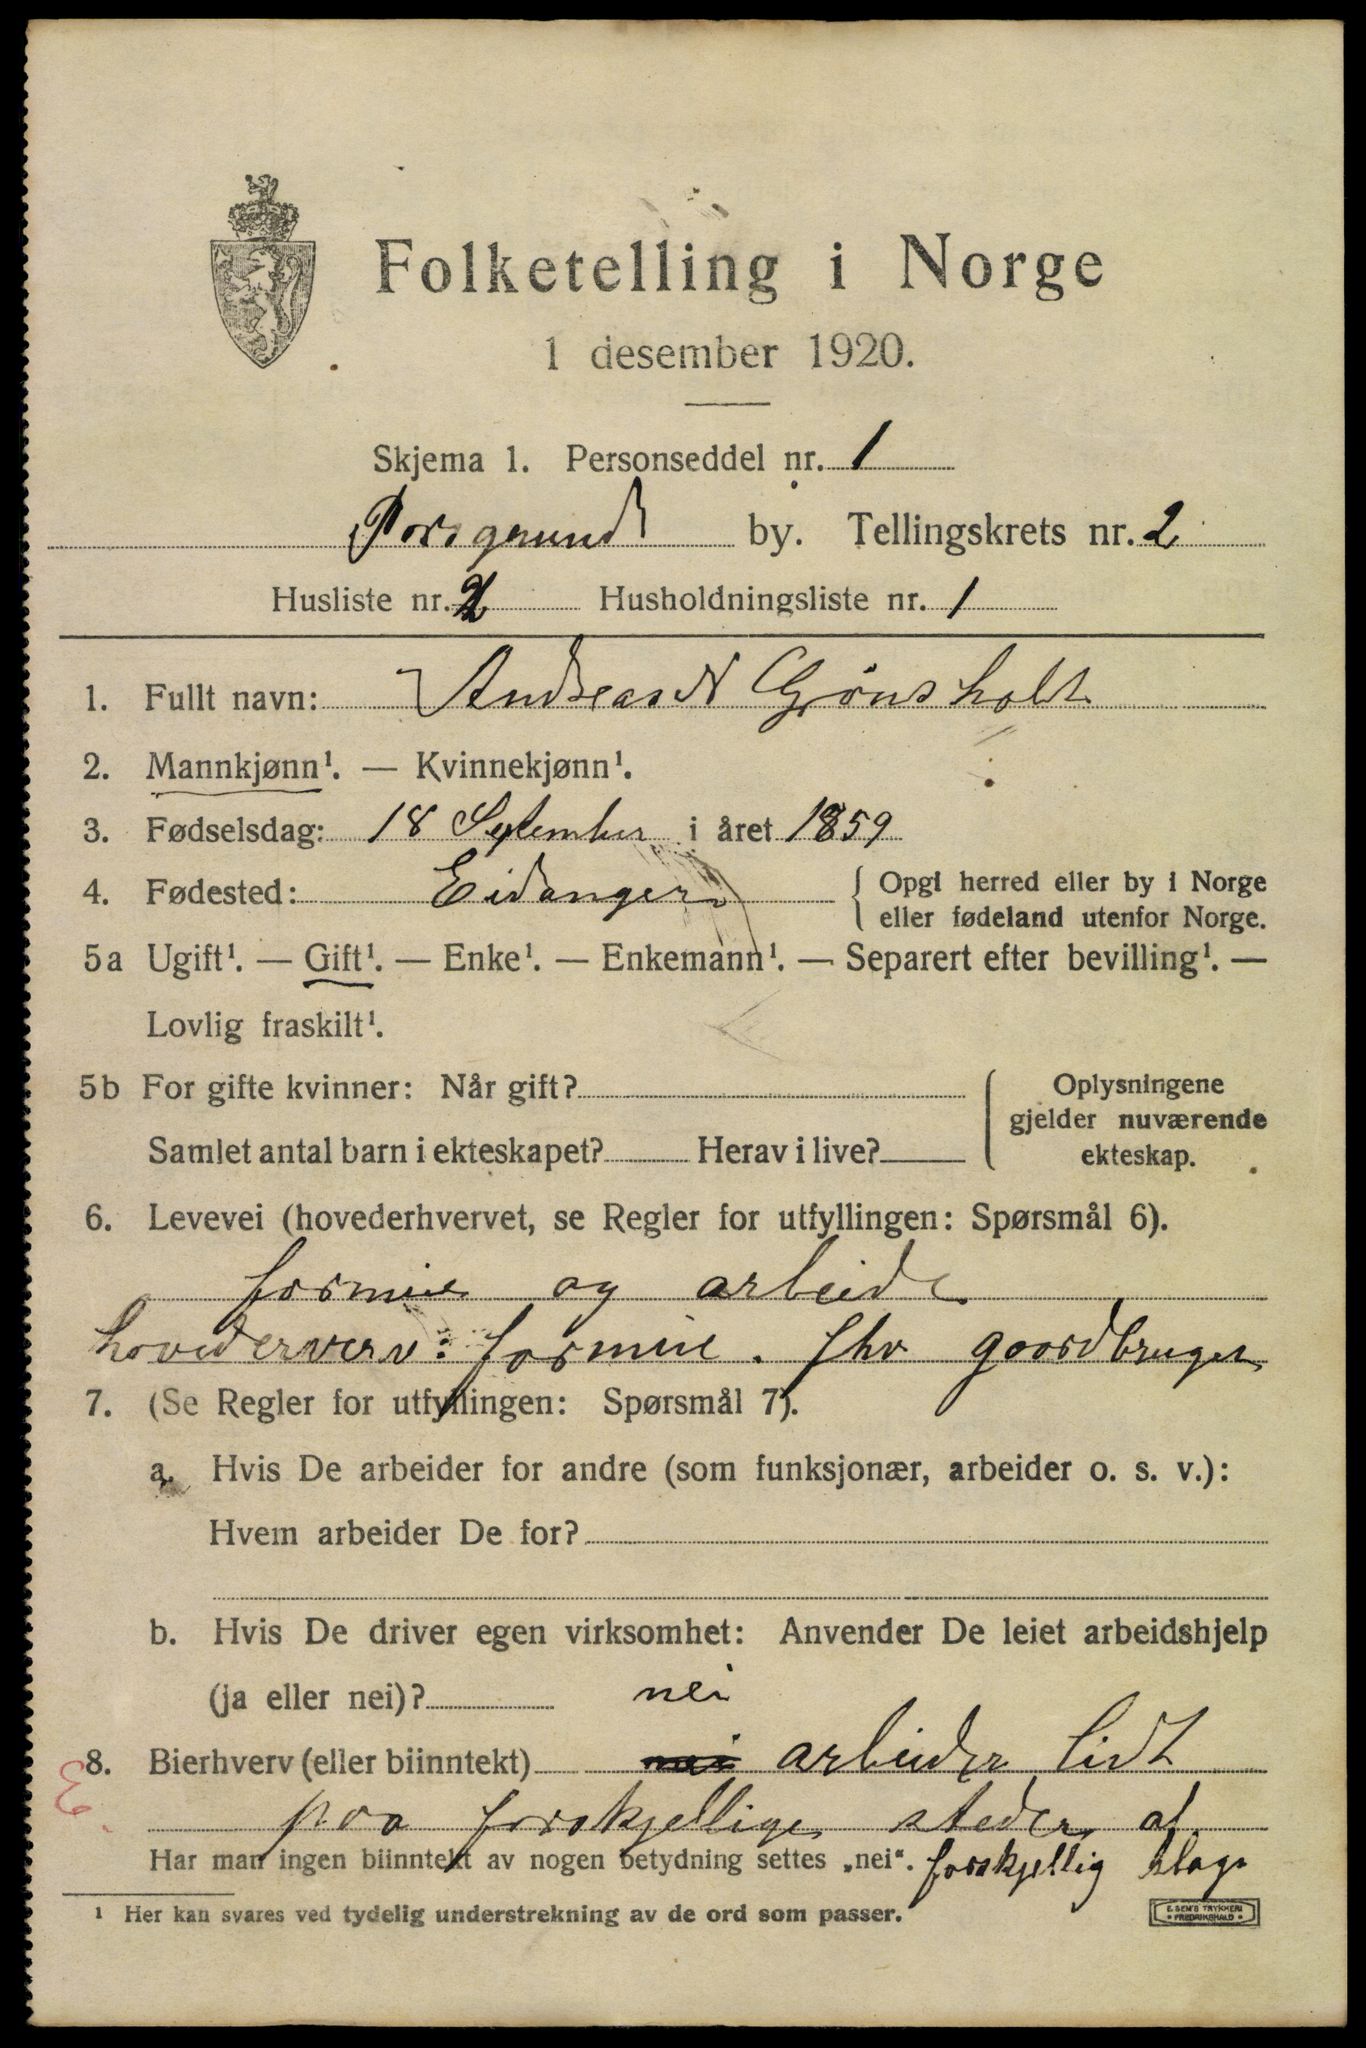 Folketelling i Norge
1 desember 1920.
Skjema 1. Personseddel nr. 1
Porsgrund by. Tellingskrets nr. 2
Husliste nr. 2 Husholdningsliste nr. 1
1. Fullt navn: Andreas N Grønsholdt
2. Mannkjønn¹. — Kvinnekjønn¹.
3. Fødselsdag: 18 September i året 1859
4. Fødested: Eidanger { Opgi herred eller by i Norge
eller fødeland utenfor Norge.
5a Ugift¹. — Gift¹. — Enke¹. — Enkemann¹. — Separert efter bevilling¹. —
Lovlig fraskilt¹.
5b For gifte kvinner: Når gift? { Oplysningene
gjelder nuværende
Samlet antal barn i ekteskapet? Herav i live? ekteskap.
6. Levevei (hovederhvervet, se Regler for utfyllingen: Spørsmål 6).
formue og arbeide
hovederverv: formue. fhv gaardbruger
7. (Se Regler for utfyllingen: Spørsmål 7).
a. Hvis De arbeider for andre (som funksjonær, arbeider o. s. v.):
Hvem arbeider De for?
b. Hvis De driver egen virksomhet: Anvender De leiet arbeidshjelp
(ja eller nei)? nei
8. Bierhverv (eller biinntekt) nei arbeider lidt
paa forskjellige steder af
Har man ingen biinntekt av nogen betydning settes „nei“. forskjellig slags
¹ Her kan svares ved tydelig understrekning av de ord som passer.
E. SEM'S TRYKKERI
FREDRIKSHALD